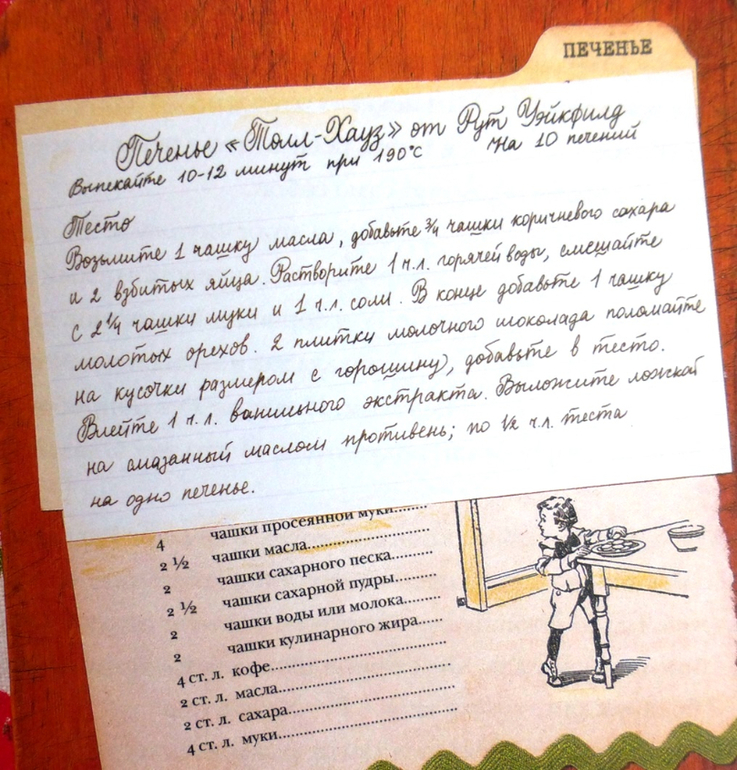 ПЕЧЕНЬЕ
Печенье «Толл-Хауз» от Рут Уэйкфилд
Выпекайте 10-12 минут при 190°С На 10 печений
Тесто
Возьмите 1 чашку масла, добавьте 3/4 чашки коричневого сахара
и 2 взбитых яйца. Растворите 1 ч.л. горячей воды, смешайте
с 2 1/4 чашки муки и 1 ч.л. соли. В конце добавьте 1 чашку
молотых орехов. 2 плитки молочного шоколада поломайте
на кусочки размером с горошину, добавьте в тесто.
Влейте 1 ч.л. ванильного экстракта. Выложите ложкой
на смазанный маслом противень; по 1/2 ч.л. теста
на одно печенье.
4 чашки просеянной муки........
2 ½ чашки масла........
2 чашки сахарного песка........
2 ½ чашки сахарной пудры........
2 чашки воды или молока........
2 чашки кулинарного жира........
4 ст. л. кофе........
2 ст. л. масла........
2 ст. л. сахара........
4 ст. л. муки........